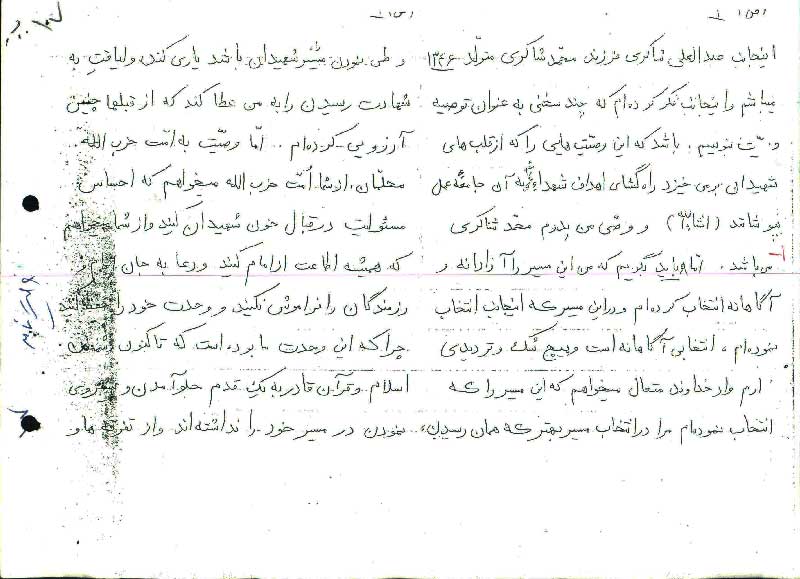 ص ۱
اینجانب عبدالعلی شاکری فرزند محمد شاکری متولد ۱۳۴۶
میباشم و اینجانب فکر کرده‌ام که چند سخنی به عنوان توصیه
و بنویسم. باشد که این وصیت هایی را که از قلب های
شهیدانی برمی خیزد راه‌گشای اهداف شهداء به آن جامعهٔ عمل
بپوشانند (انشاءالله) و وصّی من پدرم محمد شاکری
می‌باشد. اما باید بگویم که من این مسیر را آزادانه و
آگاهانه انتخاب کرده‌ام و در این مسیر که اینجانب انتخاب
نموده‌ام، انتخابی آگاهانه است و هیچ شک و تردیدی
ندارم و از خداوند متعال میخواهم که این مسیر را که
انتخاب نموده‌ام مرا در انتخاب مسیر بهتر که همان رسیدن
و طی نمودن مسیر شهیدان باشد یاری کند، و لیاقتِ به
شهادت رسیدن را به من عطا کند که از قبلها چنین
آرزویی کرده‌ام. امّا وصیّت به امّت حزب الله
محلمان، از شما اُمّت حزب الله میخواهم که احساس
مسئولیت در قبال خون شهیدان کنید و از شما میخواهم
که همیشه اطاعت از امام کنید و دعا به جان امام و
رزمندگان را فراموش نکنید و وحدت خود را حفظ کنید
چرا که این وحدت ما بوده است که تاکنون
اسلام و قرآن قادر به یک قدم جلو آمدن و پیروی
نمودن در مسیر خود را نداشته‌اند و از تفرقه ها و